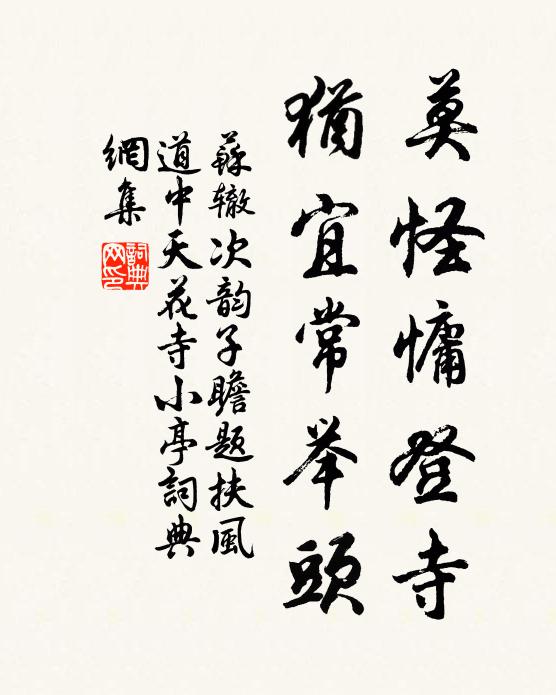 莫怪慵登寺
猶宜常举頭
蘇辙次韵子瞻题扶風
道中天花寺小亭詞典
網集
詞典網印